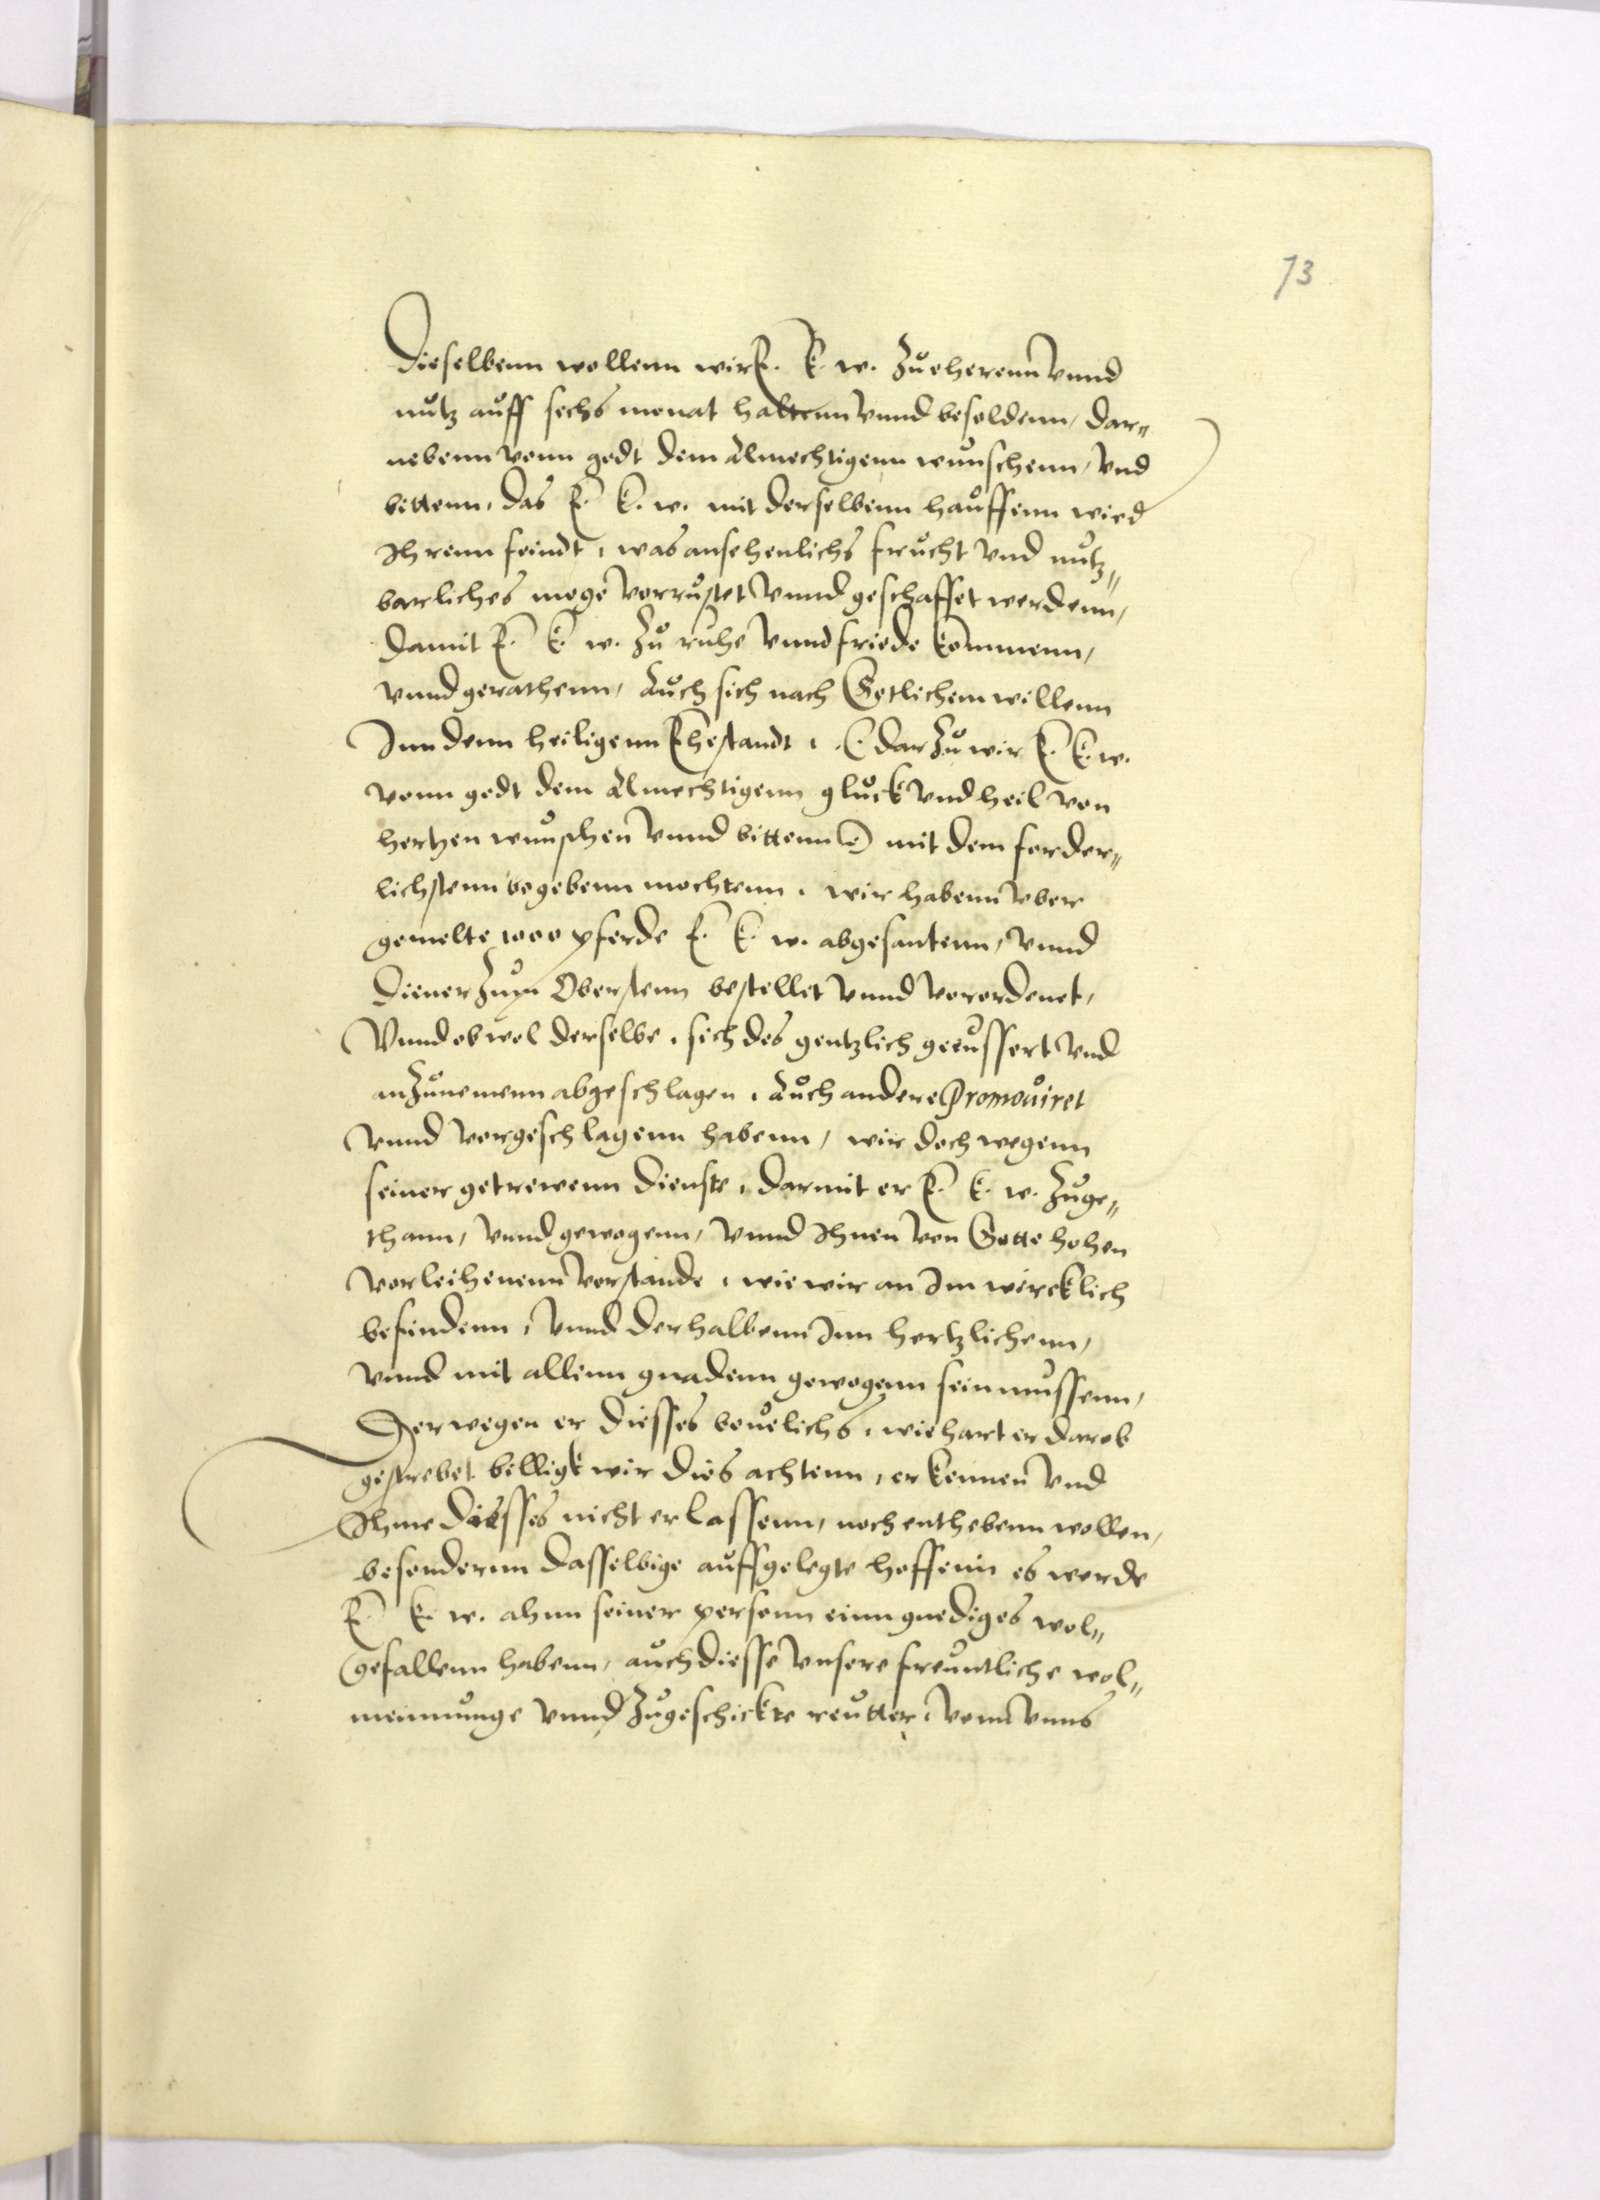 73
Dieselbenn wollenn wir E. k. w. zu eherenn vnnd
nutz auff sechs monat haltenn vnnd besoldenn, dar„
nebenn vonn godt dem Almechtigenn wunschenn, vnd
bittenn, das E. k. w. mit derselbenn hauffenn wied
Ihrenn feindt, was ansehenlichs frucht vnd nutz„
barliches moge vorrustet vnnd geschaffet werdenn,
damit E. k. w. zu ruhe vnnd friede kommenn,
vnnd gerathenn, Auch sich nach Gotlichem willenn
Inn denn heiligenn Ehestandt, (darzu wir E. k. w.
vonn godt dem Almechtigenn gluck vnd heil von
hertzen wunschen vnnd bittenn) mit dem forder„
lichstenn begebenn mochtenn. wir habenn vber
gemelte 1000 pferde E. k. w. abgesantenn, vnnd
diener zum Oberstenn bestellet vnnd verordenet,
Vnnd ob wol derselbe, sich des gentzlich geeussert vnd
anzunemenn abgeschlagen, Auch andere Promouiret
vnnd vorgeschlagenn habenn, wir doch wegenn
seiner getrewenn dienste, darmit er E. k. w. zuge„
thann, vnnd gewogenn, vnnd Ihnen von Gotte hohen
vorleihenenn vorstande, wie wir an Im wircklich
befindenn, vnnd derhalbenn Inn hertzlichenn,
vnnd mit allenn gnadenn gewogenn sein mussenn,
Derwegen er diesses beuelichs, wie hart er darob
gestrebet billigk wir dies achtenn, erkennen vnd
Ihme diesses nicht erlassenn, noch enthebenn wollen,
besondernn dasselbige auffgelegte hoffenn es werde
E. k. w. ahnn seiner personn einn gnediges wol„
gefallenn habenn, auch diesse vnsere freuntliche wol„
meinnunge vnnd zugeschickte reutter, vonn vnns